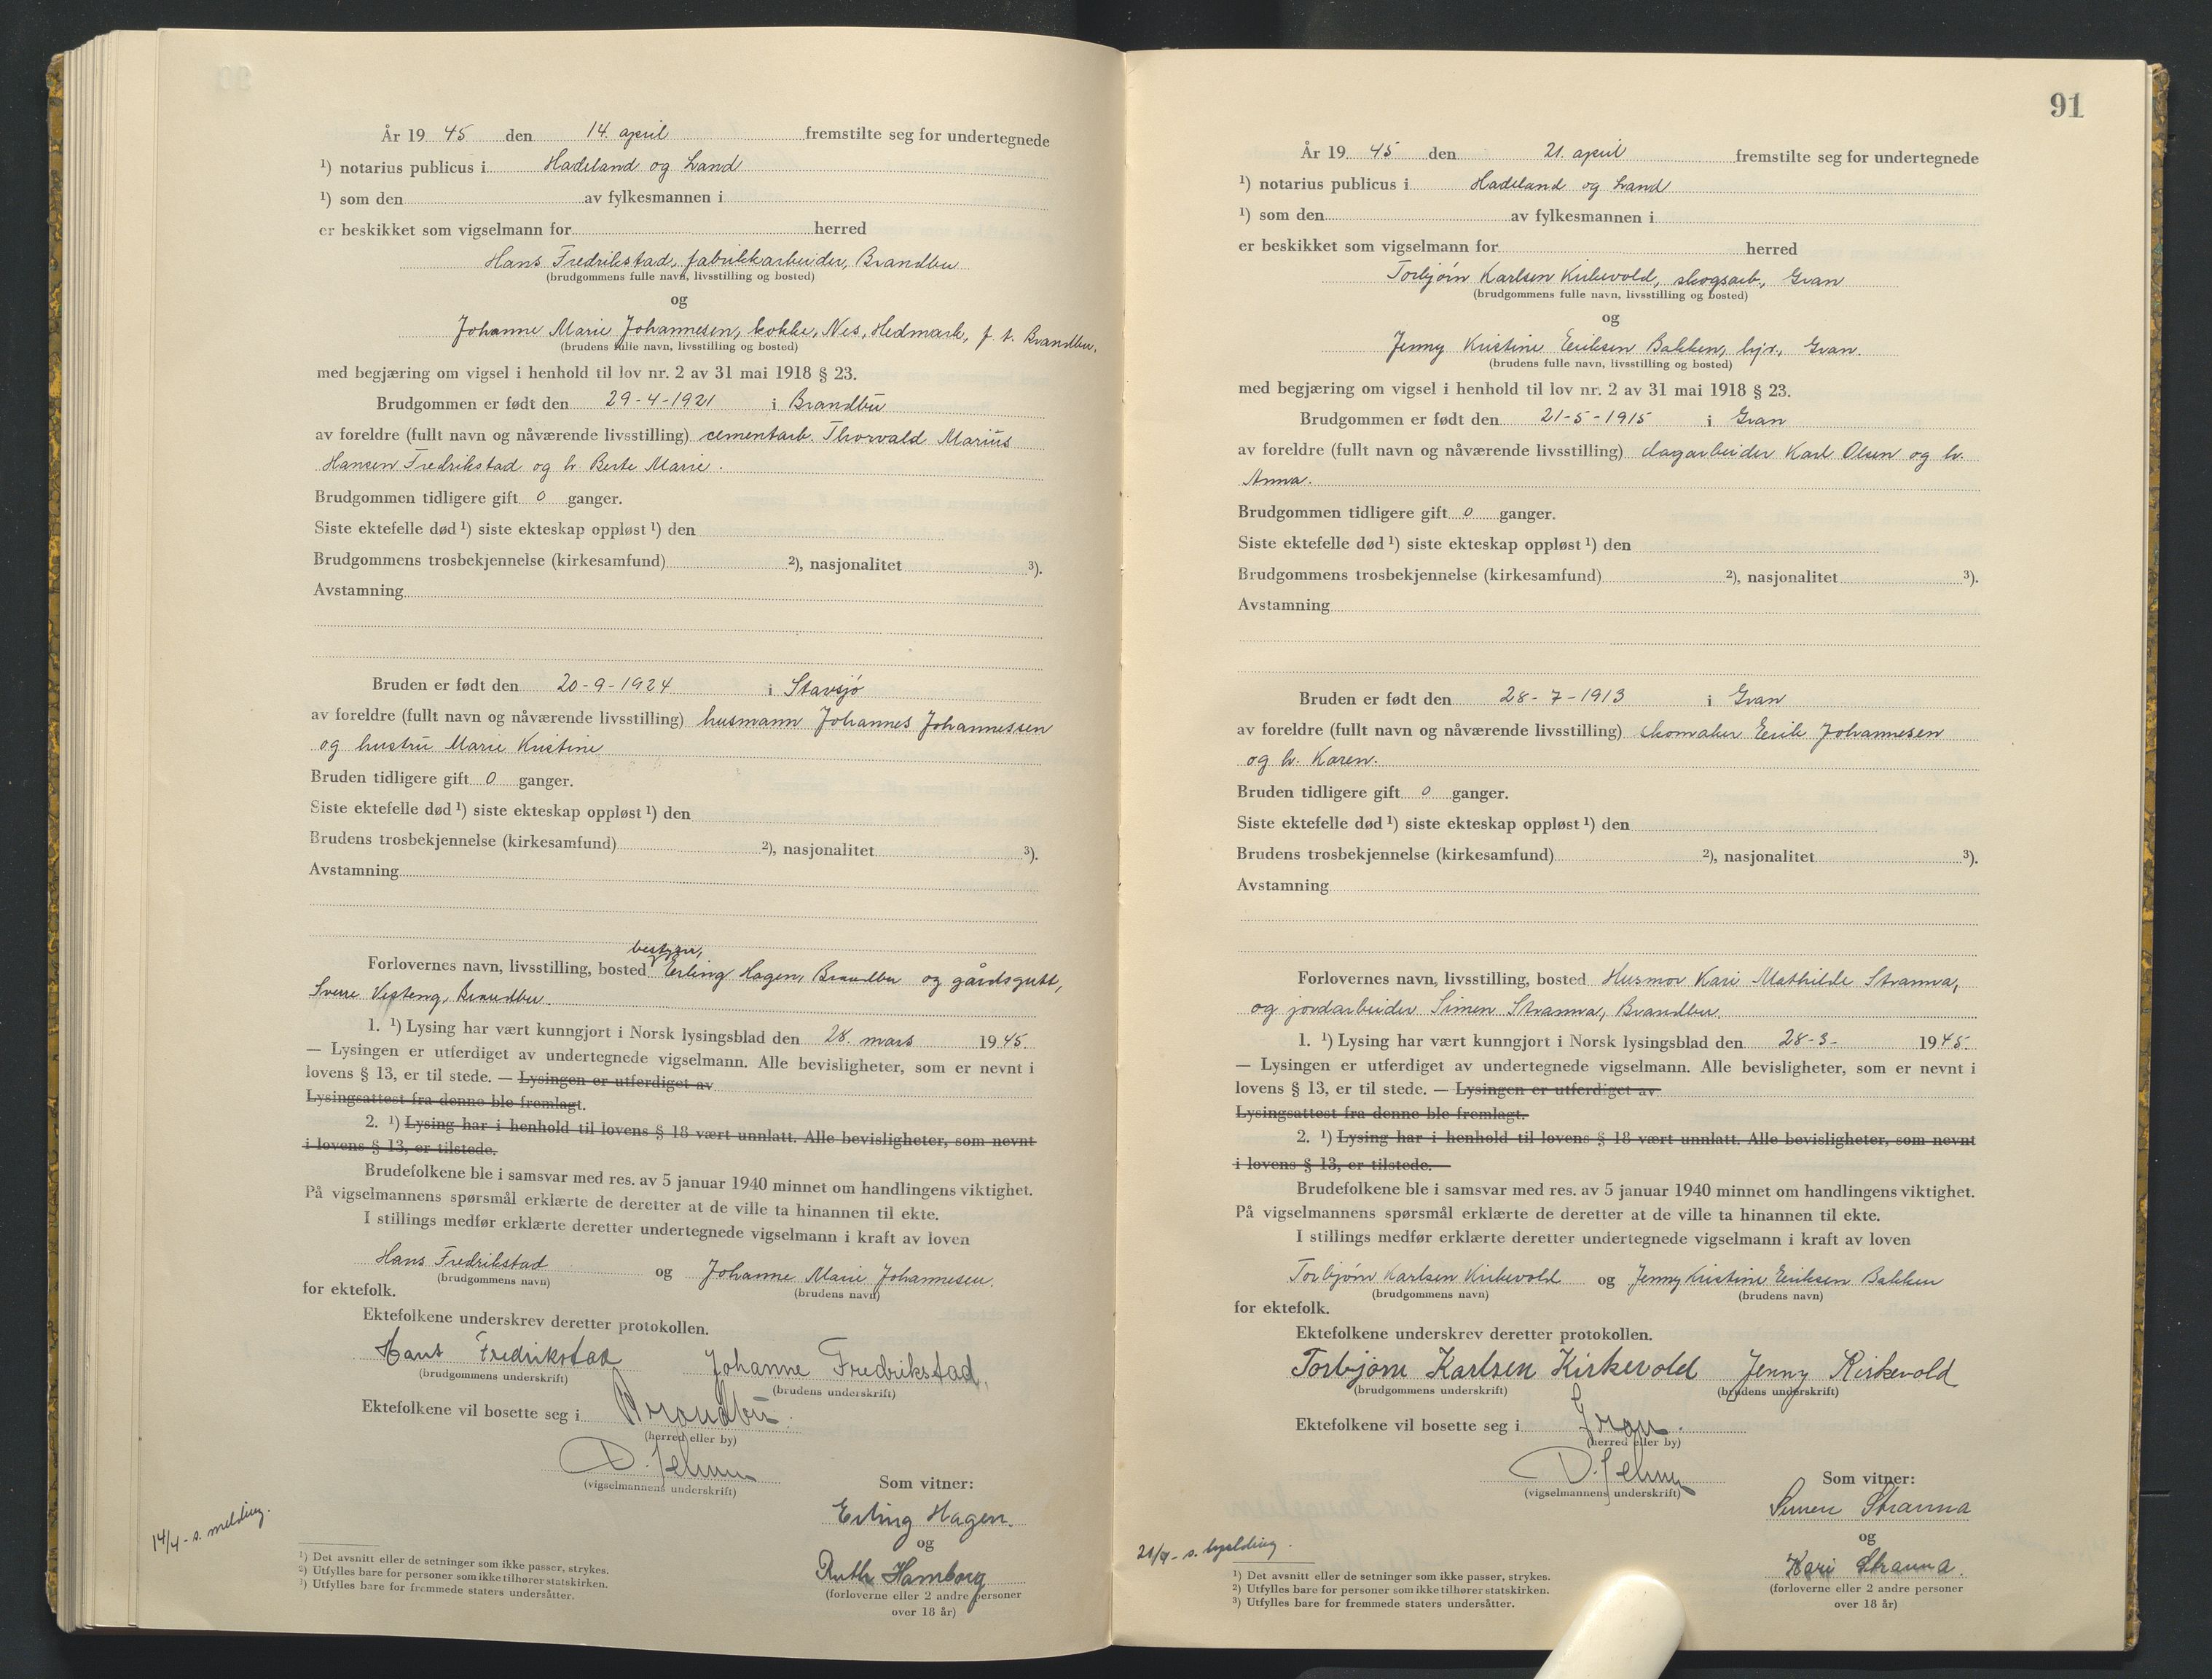 År 19 45 den 14. april fremstilte seg for undertegnede
¹) notarius publicus i Hadeland og Land
¹) som den av fylkesmannen i
er beskikket som vigselmann for herred
Hans Fredrikstad, fabrikkarbeider, Brandbu
(brudgommens fulle navn, livsstilling og bosted)
og
Johanne Marie Johannesen, kokke, Nes, Hedmark, f. t. Brandbu.
(brudens fulle navn, livsstilling og bosted)
med begjæring om vigsel i henhold til lov nr. 2 av 31 mai 1918 § 23.
Brudgommen er født den 29-4-1921 i Brandbu
av foreldre (fullt navn og nåværende livsstilling) cementarb. Thorvald Marius
Hansen Fredrikstad og h. Berte Marie.
Brudgommen tidligere gift 0 ganger.
Siste ektefelle død ¹) siste ekteskap oppløst ¹) den
Brudgommens trosbekjennelse (kirkesamfund) ²), nasjonalitet ³).
Avstamning
Bruden er født den 20-9-1924 i Stavsjø
av foreldre (fullt navn og nåværende livsstilling) husmann Johannes Johannessen
og hustru Marie Kristine
Bruden tidligere gift 0 ganger.
Siste ektefelle død ¹) siste ekteskap oppløst ¹) den
Brudens trosbekjennelse (kirkesamfund) ²), nasjonalitet ³).
Avstamning
bestyrer,
Forlovernes navn, livsstilling, bosted Erling Hagen, Brandbu og gårdsgutt,
Sverre Vesteng, Brandbu.
1. ¹) Lysing har vært kunngjort i Norsk lysingsblad den 28. mars 19 45.
— Lysingen er utferdiget av undertegnede vigselmann. Alle bevisligheter, som er nevnt i
lovens § 13, er til stede. — Lysingen er utferdiget av
Lysingsattest fra denne ble fremlagt.
2. ¹) Lysing har i henhold til lovens § 18 vært unnlatt. Alle bevisligheter, som nevnt
i lovens § 13, er tilstede.
Brudefolkene ble i samsvar med res. av 5 januar 1940 minnet om handlingens viktighet.
På vigselmannens spørsmål erklærte de deretter at de ville ta hinannen til ekte.
I stillings medfør erklærte deretter undertegnede vigselmann i kraft av loven
Hans Fredrikstad og Johanne Marie Johannesen.
(brudgommens navn) (brudens navn)
for ektefolk.
Ektefolkene underskrev deretter protokollen.
Hans Fredrikstad Johanne Fredrikstad.
(brudgommens underskrift) (brudens underskrift)
Ektefolkene vil bosette seg i Brandbu.
(herred eller by)
(vigselmannens underskrift)
Som vitner:
Erling Hagen.
og
Ruth Hamborg
(forloverne eller 2 andre personer
over 18 år)
14/4 - s. melding.
¹) Det avsnitt eller de setninger som ikke passer, strykes.
²) Utfylles bare for personer som ikke tilhører statskirken.
³) Utfylles bare for fremmede staters undersåtter.
91
År 19 45 den 21. april fremstilte seg for undertegnede
¹) notarius publicus i Hadeland og Land
¹) som den av fylkesmannen i
er beskikket som vigselmann for herred
Torbjørn Karlsen Kirkevold, skogsarb., Gran
(brudgommens fulle navn, livsstilling og bosted)
og
Jenny Kristine Eriksen Bakken, hjr., Gran.
(brudens fulle navn, livsstilling og bosted)
med begjæring om vigsel i henhold til lov nr. 2 av 31 mai 1918 § 23.
Brudgommen er født den 21-5-1915 i Gran
av foreldre (fullt navn og nåværende livsstilling) dagarbeider Karl Olsen og h.
Anna.
Brudgommen tidligere gift 0 ganger.
Siste ektefelle død ¹) siste ekteskap oppløst ¹) den
Brudgommens trosbekjennelse (kirkesamfund) ²), nasjonalitet ³).
Avstamning
Bruden er født den 28-7-1913 i Gran
av foreldre (fullt navn og nåværende livsstilling) skomaker Erik Johannesen
og h. Karen.
Bruden tidligere gift 0 ganger.
Siste ektefelle død ¹) siste ekteskap oppløst ¹) den
Brudens trosbekjennelse (kirkesamfund) ²), nasjonalitet ³).
Avstamning
Forlovernes navn, livsstilling, bosted Husmor Kari Mathilde Stranna,
og jordarbeider Simen Stranna, Brandbu.
1. ¹) Lysing har vært kunngjort i Norsk lysingsblad den 28-3- 19 45.
— Lysingen er utferdiget av undertegnede vigselmann. Alle bevisligheter, som er nevnt i
lovens § 13, er til stede. — Lysingen er utferdiget av
Lysingsattest fra denne ble fremlagt.
2. ¹) Lysing har i henhold til lovens § 18 vært unnlatt. Alle bevisligheter, som nevnt
i lovens § 13, er tilstede.
Brudefolkene ble i samsvar med res. av 5 januar 1940 minnet om handlingens viktighet.
På vigselmannens spørsmål erklærte de deretter at de ville ta hinannen til ekte.
I stillings medfør erklærte deretter undertegnede vigselmann i kraft av loven
Torbjørn Karlsen Kirkevold og Jenny Kristine Eriksen Bakken
(brudgommens navn) (brudens navn)
for ektefolk.
Ektefolkene underskrev deretter protokollen.
Torbjørn Karlsen Kirkevold Jenny Kirkevold
(brudgommens underskrift) (brudens underskrift)
Ektefolkene vil bosette seg i Gran.
(herred eller by)
(vigselmannens underskrift)
Som vitner:
Simen Stranna
og
Kari Stranna.
(forloverne eller 2 andre personer
over 18 år)
21/4 - s.
¹) Det avsnitt eller de setninger som ikke passer, strykes.
²) Utfylles bare for personer som ikke tilhører statskirken.
³) Utfylles bare for fremmede staters undersåtter.